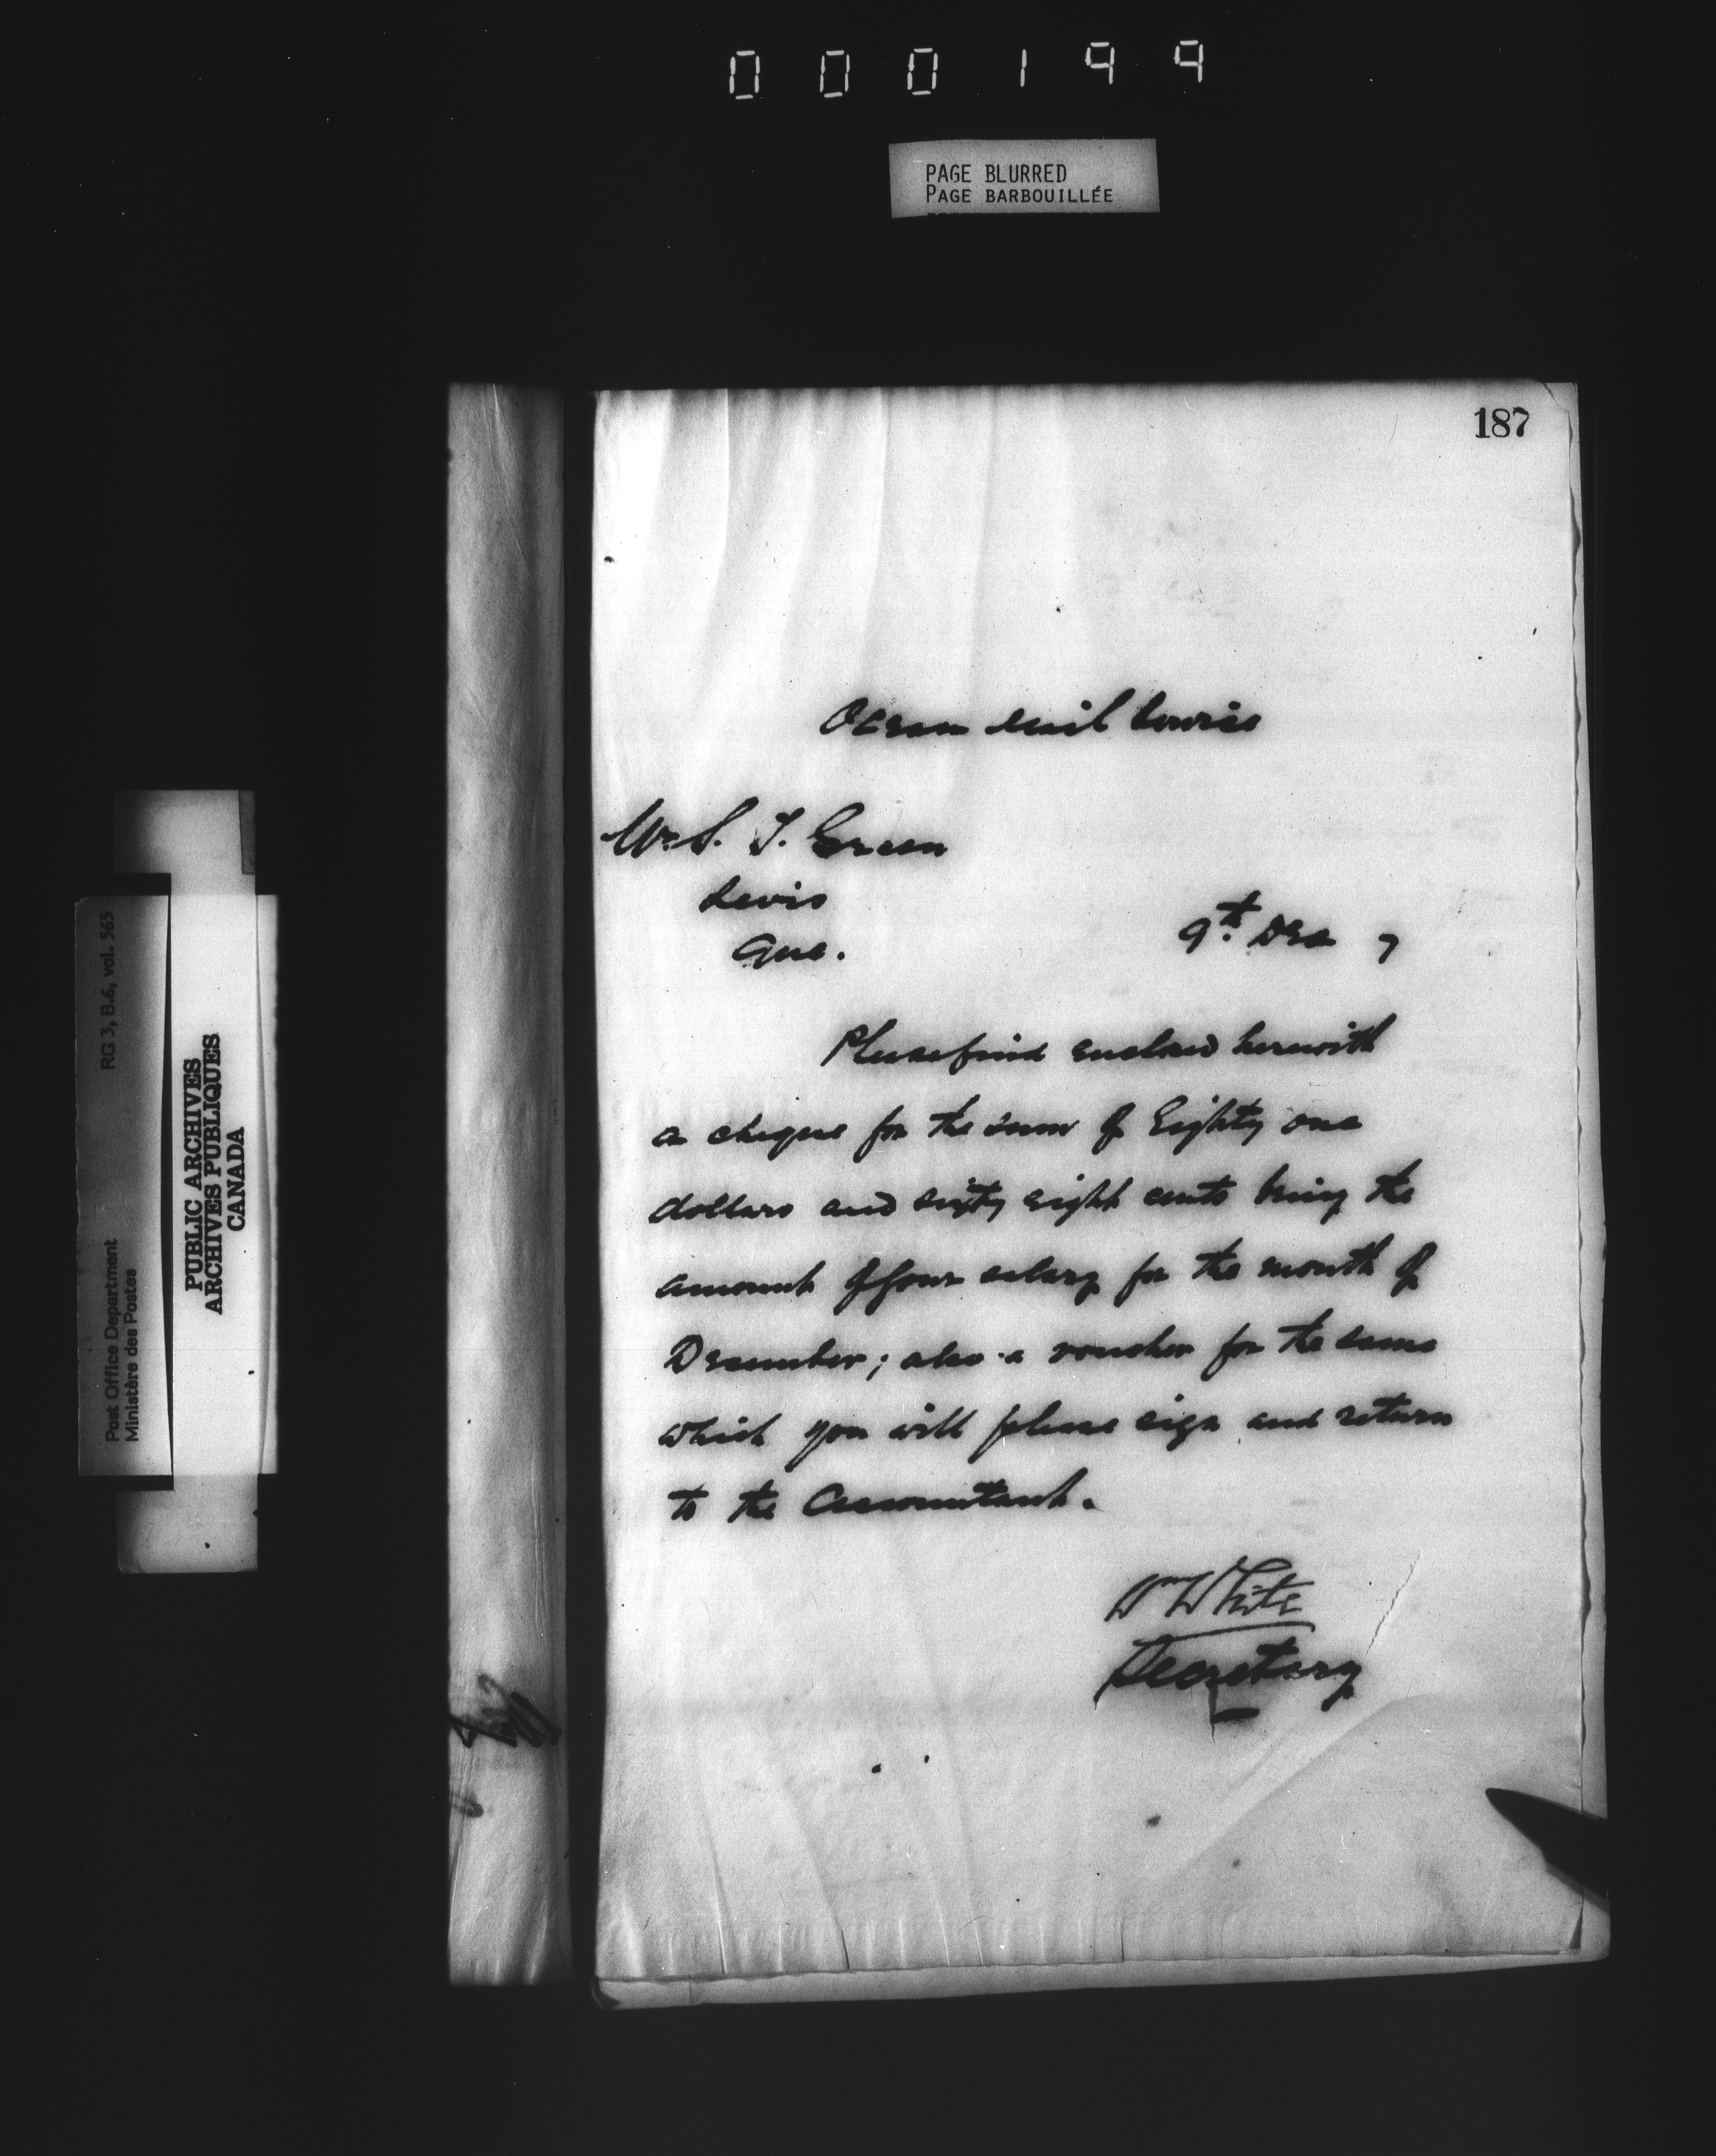 000199
PAGE BLURRED
PAGE BARBOUILLÉE
187
Ocean Mail Service
Mr. S. T. Green
Levis
Que.
9th. Dec 7
Please find enclosed herewith
a cheque for the sum of Eighty one
dollars and sixty eight cents being the
amount of your salary for the month of
December; also a voucher for the same
which you will please sign and return
to the Accountant.
Wm White
Secretary
RG 3, B.6, vol. 565
Post Office Department
Ministère des Postes
PUBLIC ARCHIVES
ARCHIVES PUBLIQUES
CANADA